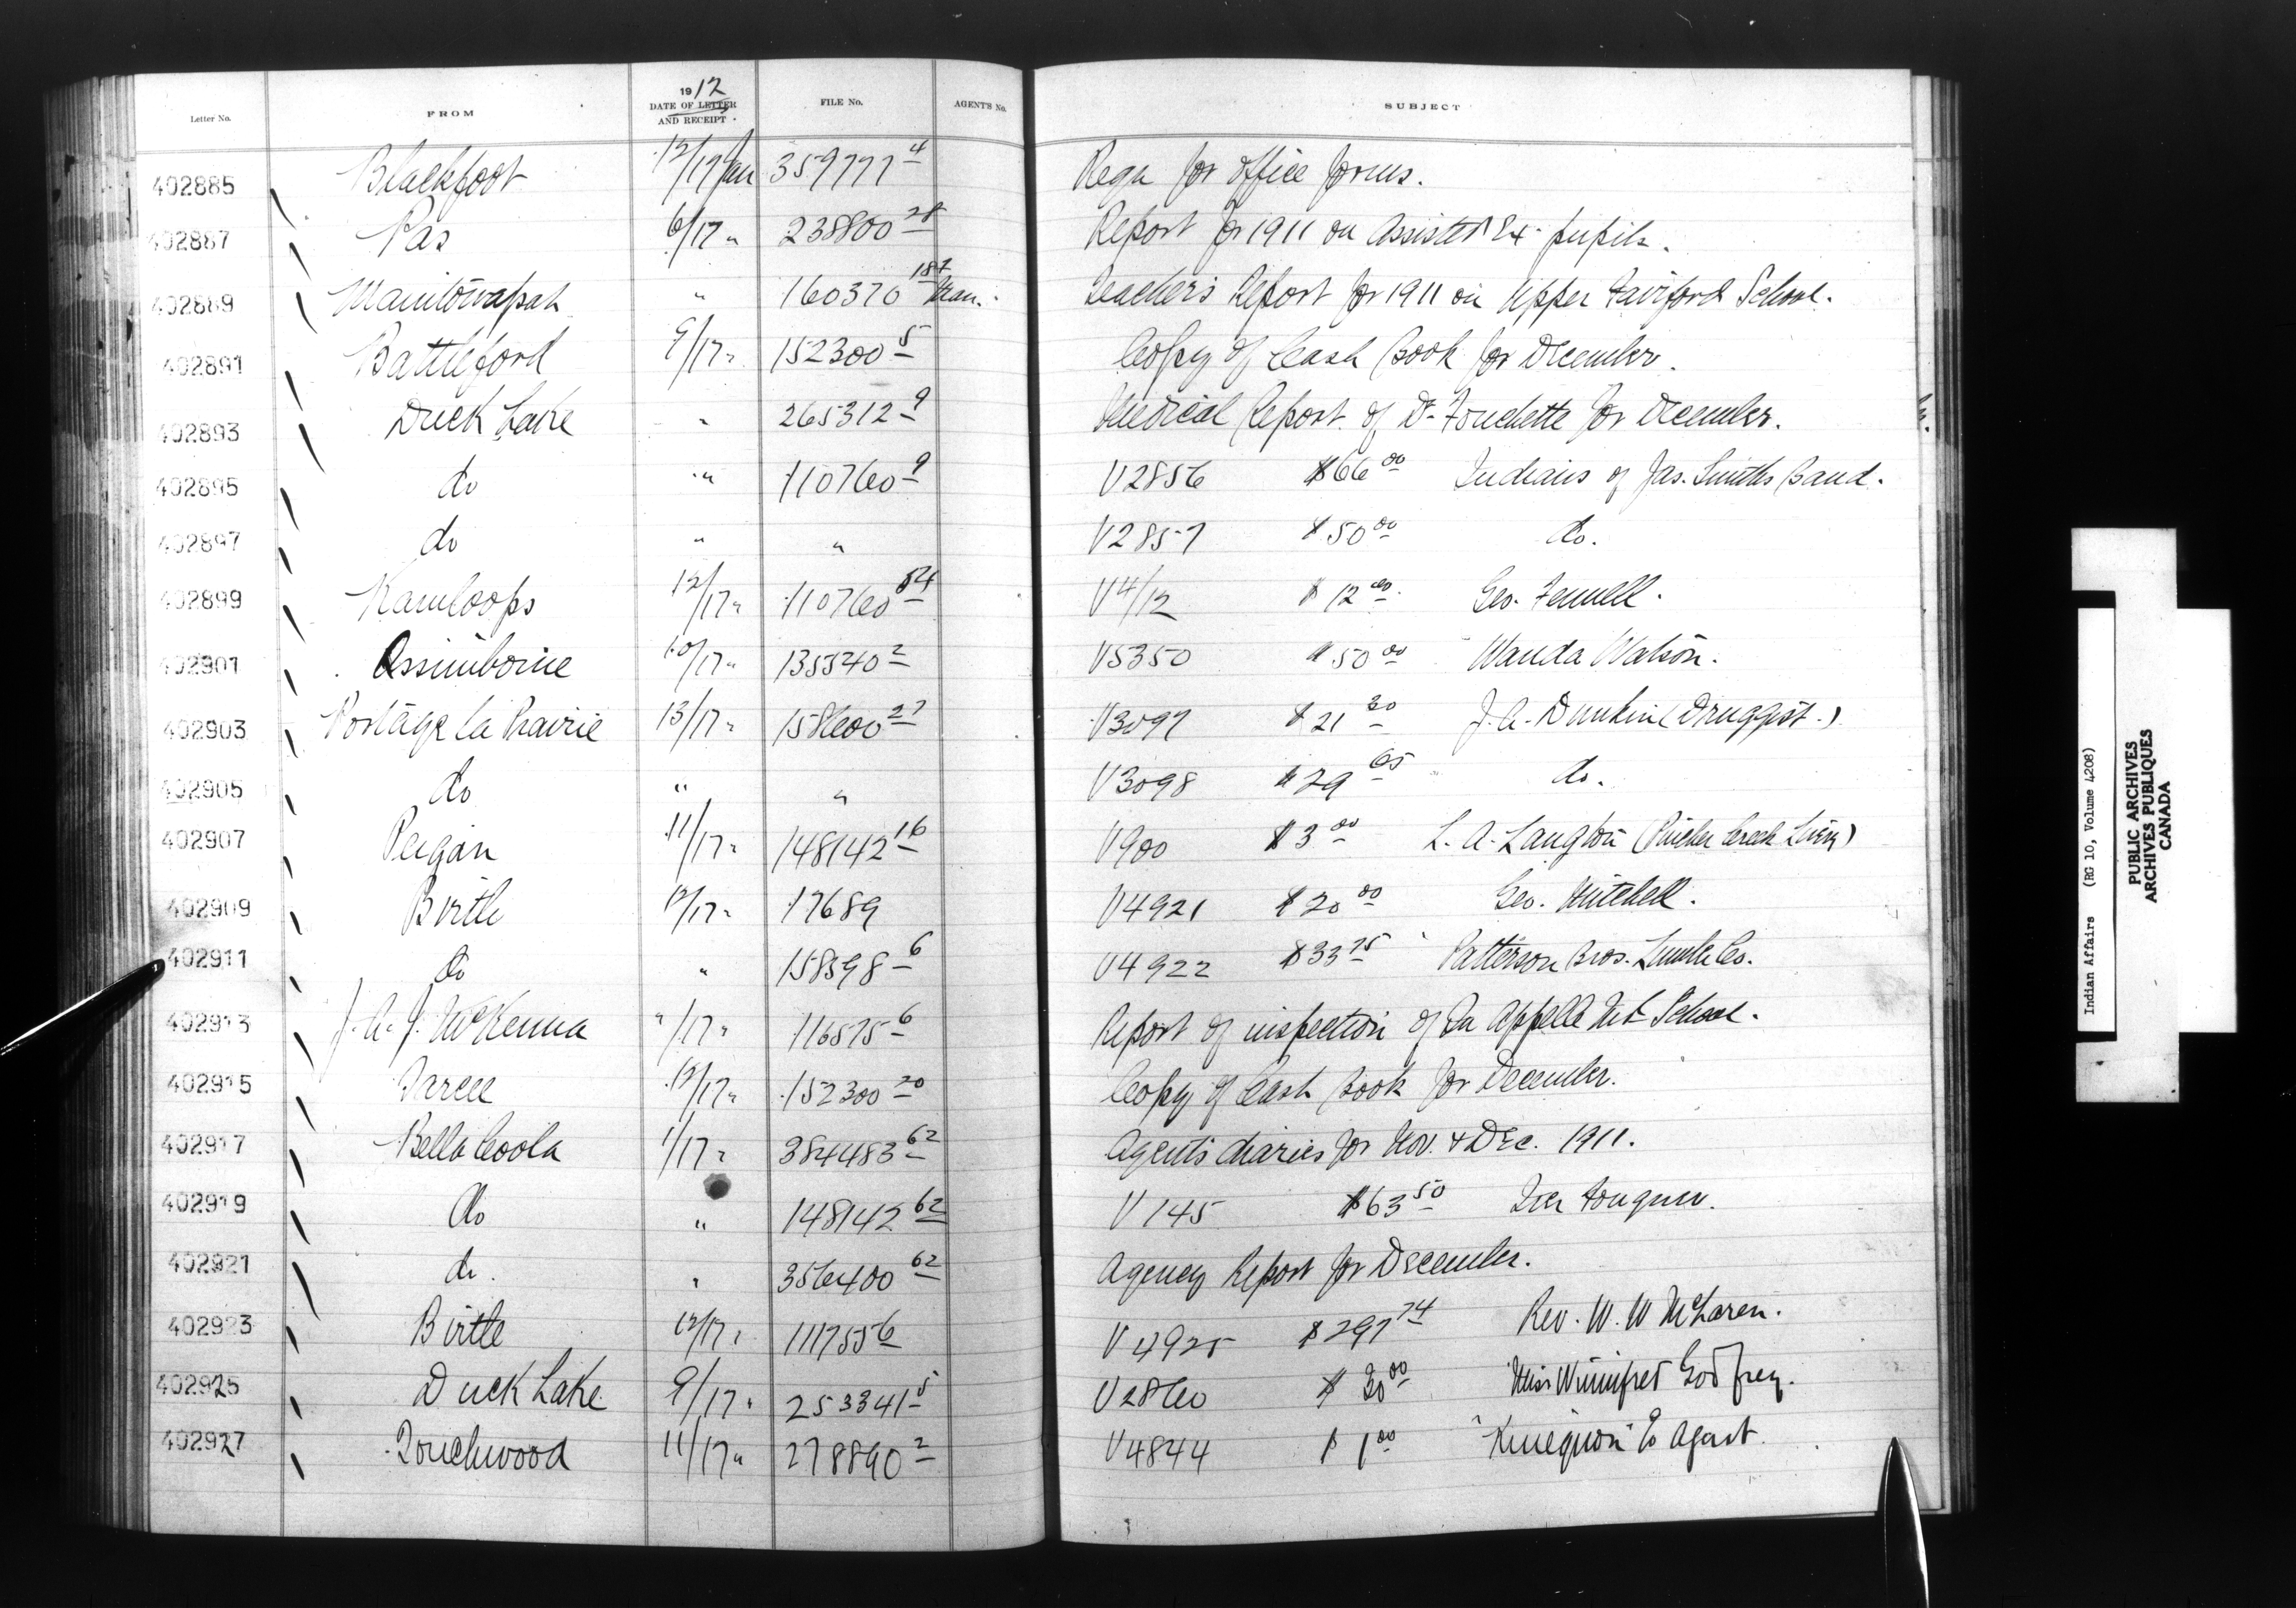 1912
Letter No. FROM DATE OF LETTER AND RECEIPT FILE No. AGENT'S No. SUBJECT
402885 Blackfoot 12/17 Jan 359777 4 Regn for office forms.
402887 Pas 6/17 " 238800 28 Report for 1911 on Assisted Ex-pupils.
402889 Manitowapah " 160370 Teacher's Report for 1911 on Upper Fairford School.
402891 Battleford 9/17 " 152300 5 Copy of Cash Book for December.
402893 Duck Lake " 265312 9 Medical Report of Dr. Touchette for December.
402895 do " 110760 9 V2856 $66 00 Indians of Jas. Smiths Band.
402897 do " " V2857 $50 00 do.
402899 Kamloops 12/17 " 110760 54 V4/12 $12 00 Geo. Fennell.
402901 Assiniboine 10/17 " 135540 2 V5350 $50 00 Wanda Watson.
402903 Portage la Prairie 13/17 " 158600 27 V3097 $21 J. A. (Druggist.)
402905 do " " V3098 $29 65 do.
402907 Peigan 11/17 " 148142 16 V900 $3 00 L. A. Langton (Pincher Creek
402909 Birtle 12/17 " 17689 V4921 $20 00 Geo. Mitchell.
402911 do " 158598 6 V4922 $33 75 Patterson Bros. Co.
402913 J. A. J. McKenna "/17 " 116575 6 Report of inspection of Qu Appelle School.
402915 Sarcee 12/17 " 152300 20 Copy of Cash Book for December.
402917 Bella Coola 1/17 " 384483 62 Agent's diaries for Nov. & Dec. 1911.
402919 do " 148142 62 V145 $63 50 Iver Fougner.
402921 do. " 356400 62 Agency Report for December.
402923 Birtle 12/17 " 111755 6 V4925 $297 74 Rev. W. W McLaren.
402925 Duck Lake 9/17 " 253341 5 V2860 $30 00 Miss Winnifred Godfrey.
402927 Touchwood 11/17 " 278890 2 V4844 $1 00 Agent.
Indian Affairs (RG 10, Volume 4208)
PUBLIC ARCHIVES
ARCHIVES PUBLIQUES
CANADA